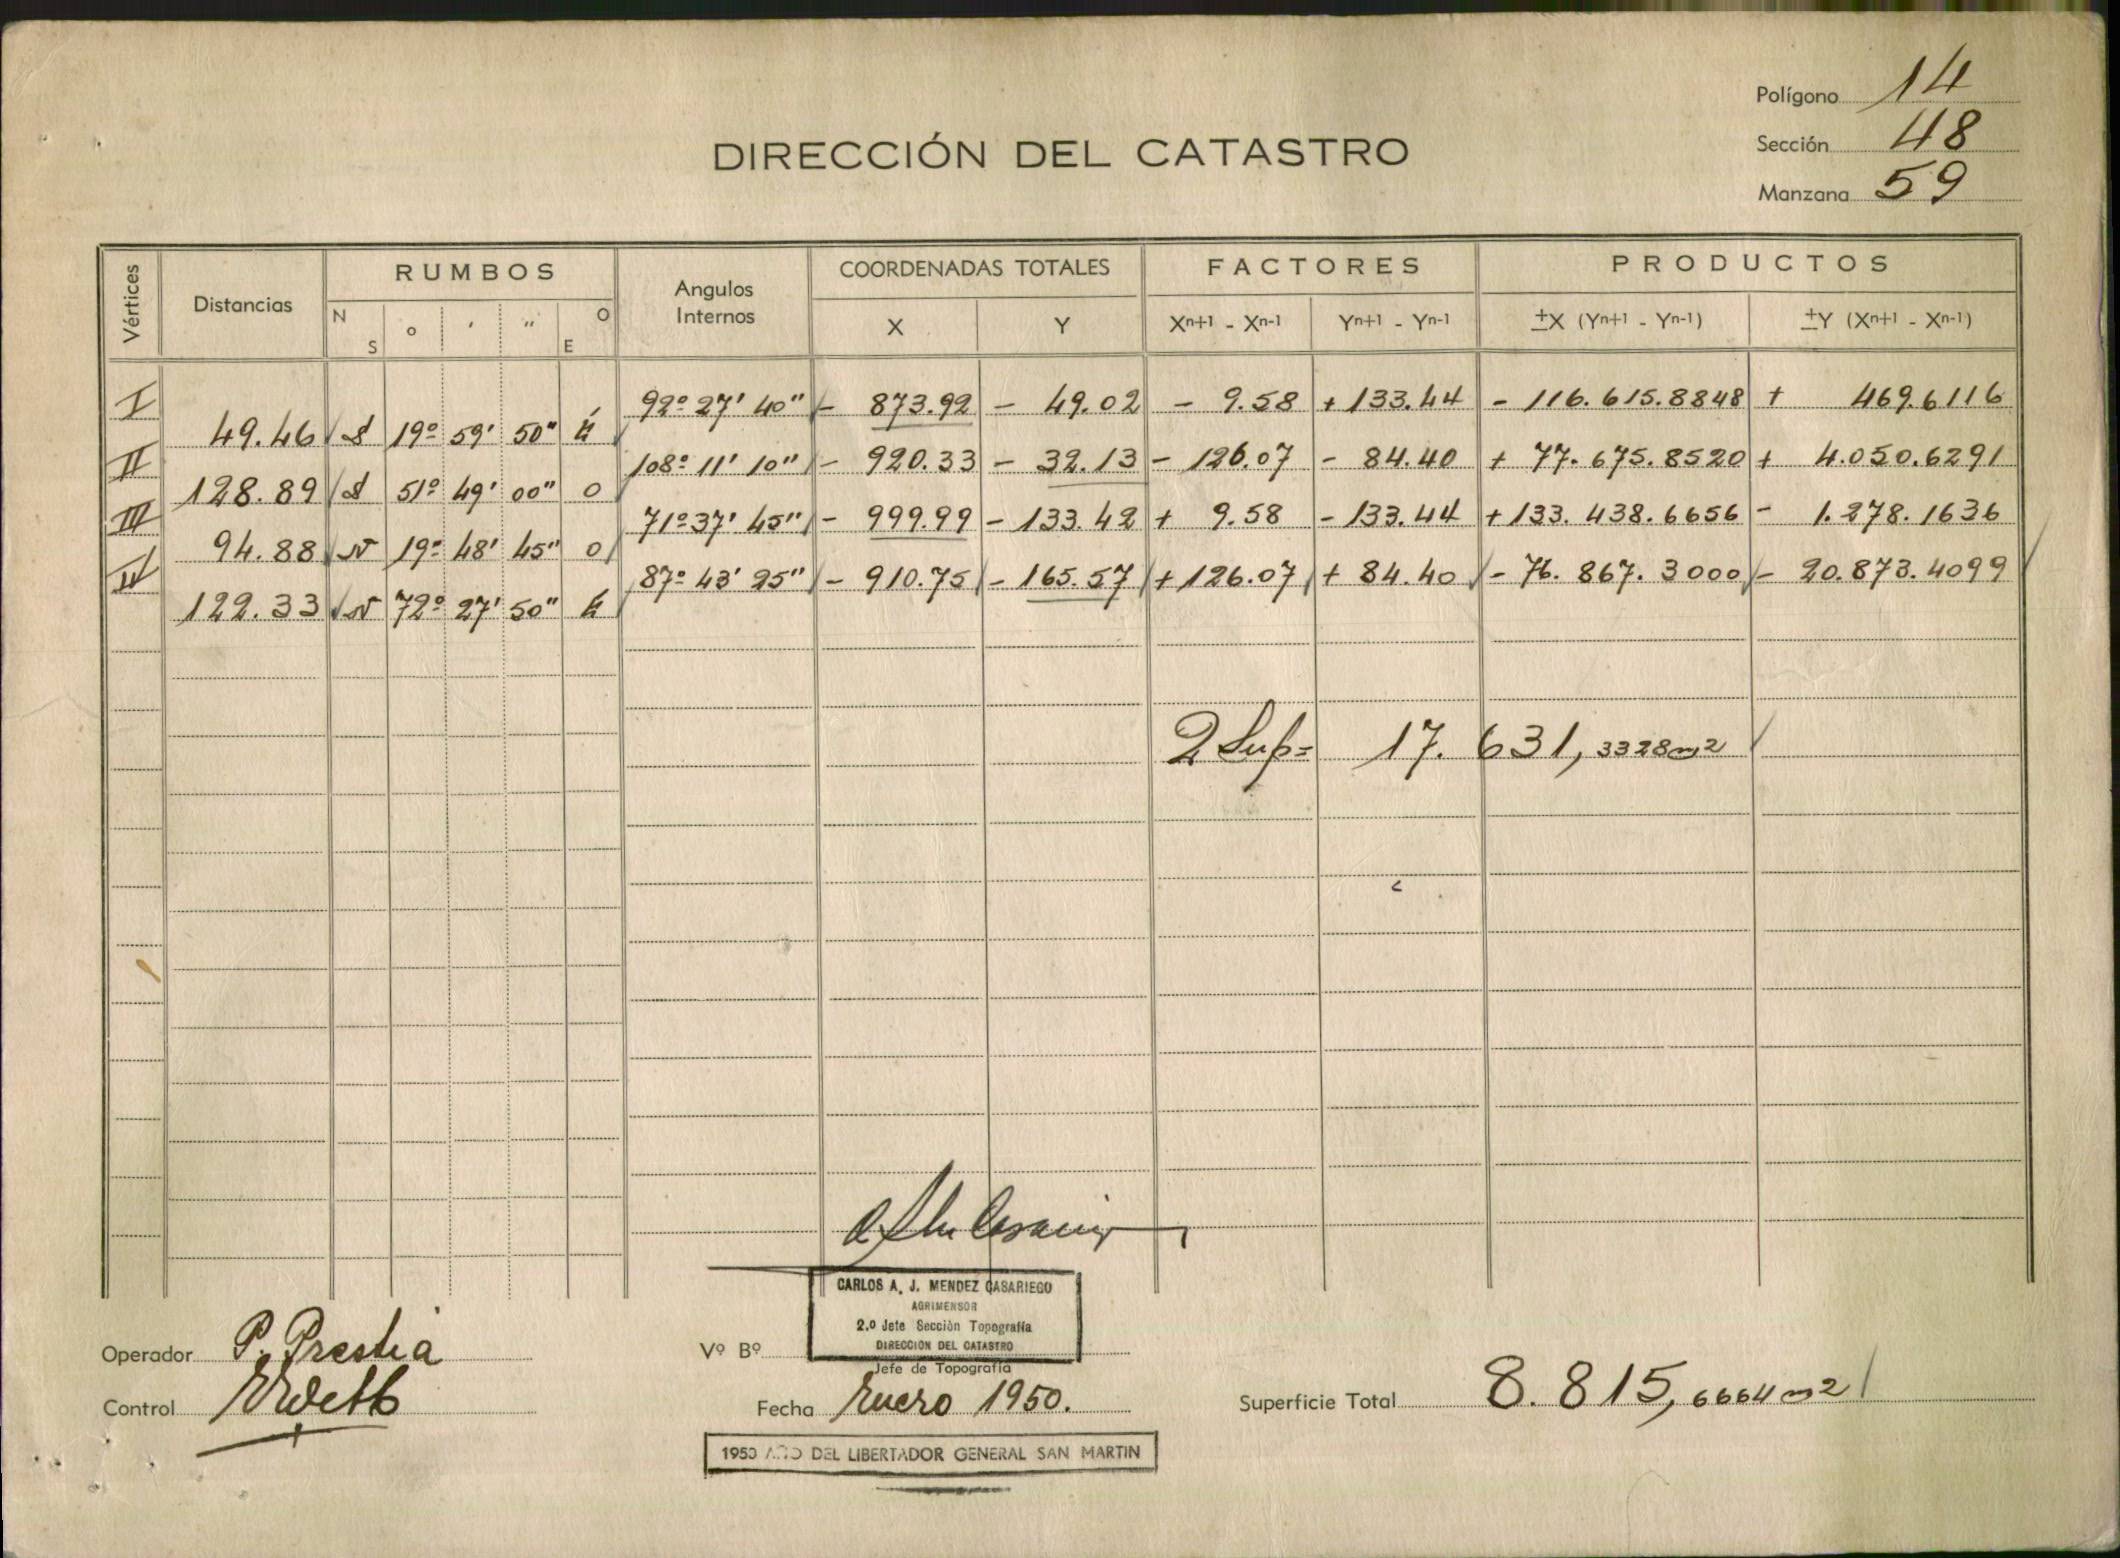 Polígono 14
DIRECCIÓN DEL CATASTRO
Sección 48
Manzana 59
Vértices Distancias RUMBOS Angulos Internos COORDENADAS TOTALES FACTORES PRODUCTOS
N S o ' " O E X Y Xn+1 - Xn-1 Yn+1 - Yn-1 ±X (Yn+1 - Yn-1) ±Y (Xn+1 - Xn-1)
I 92º 27' 40" - 873.92 - 49.02 - 9.58 + 133.44 - 116.615.8848 + 469.6116
49.46 S 19º 59' 50" E
II 108º 11' 10" - 920.33 - 32.13 - 126.07 - 84.40 + 77.675.8520 + 4.050.6291
128.89 S 51º 49' 00" O
III 71º 37' 45" - 999.99 - 133.42 + 9.58 - 133.44 + 133.438.6656 - 1.278.1636
94.88 N 19º 48' 45" O
IV 87º 43' 25" - 910.75 - 165.57 + 126.07 + 84.40 - 76.867.3000 - 20.873.4099
122.33 N 72º 27' 50" E
2 Sup= 17.631,3328m2
CARLOS A. J. MENDEZ CASARIEGO
AGRIMENSOR
2.º Jefe Sección Topografía
DIRECCION DEL CATASTRO
Operador P. Prestia
Vº Bº
Jefe de Topografía
Control
Fecha Enero 1950.
Superficie Total 8.815,6664m2
1950 AÑO DEL LIBERTADOR GENERAL SAN MARTIN